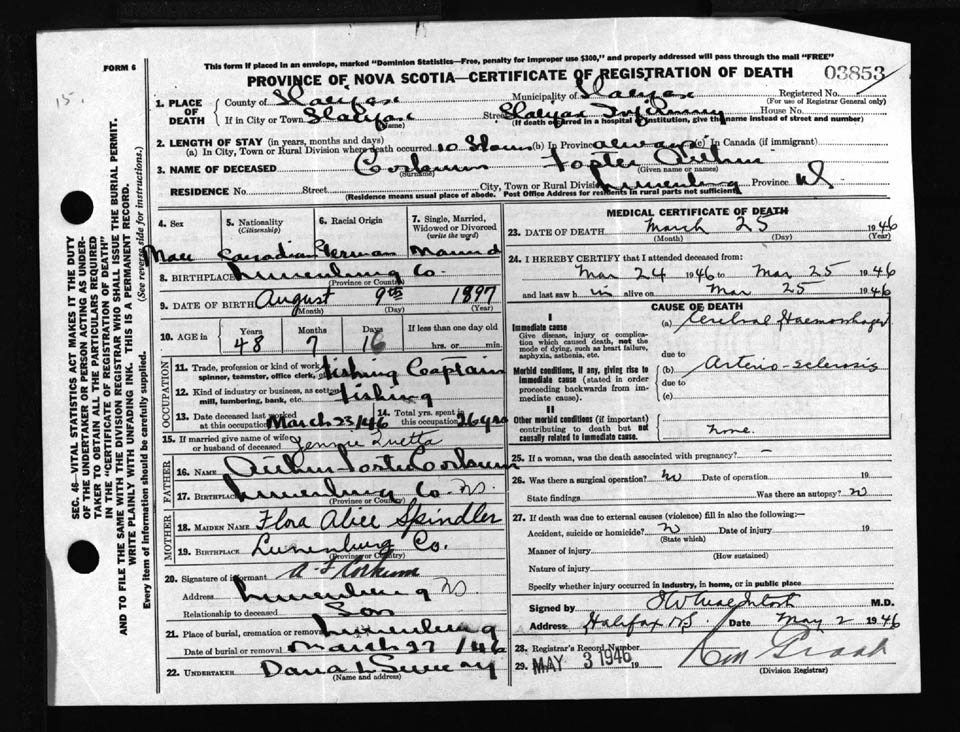 15
15.
FORM 6
This form if placed in an envelope, marked "Dominion Statistics—Free, penalty for improper use $300," and properly addressed will pass through the mail "FREE"
PROVINCE OF NOVA SCOTIA—CERTIFICATE OF REGISTRATION OF DEATH
03853
1. PLACE OF DEATH
County of Halifax Municipality of Halifax Registered No.
(For use of Registrar General only)
If in City or Town Halifax Street Halifax Infirmary House No.
(Name) (If death occurred in a hospital or institution, give the name instead of street and number)
2. LENGTH OF STAY (in years, months and days)
(a) In City, Town or Rural Division where death occurred 10 Hours (b) In Province always (c) In Canada (if immigrant)
3. NAME OF DECEASED Corkum Foster Arthur
(Surname) (Given name or names)
RESIDENCE No. Street City, Town or Rural Division Lunenburg Province NS
(Residence means usual place of abode. Post Office Address for residents in rural parts not sufficient)
4. Sex
Male
5. Nationality (Citizenship)
Canadian
6. Racial Origin
German
7. Single, Married, Widowed or Divorced (write the word)
Married
8. BIRTHPLACE Lunenburg Co.
(Province or Country)
9. DATE OF BIRTH August 9th 1897
(Month) (Day) (Year)
10. AGE in Years Months Days If less than one day old
48 7 16 hrs. or min.
OCCUPATION
11. Trade, profession or kind of work as spinner, teamster, office clerk, etc. Fishing Captain
12. Kind of industry or business, as cotton mill, lumbering, bank, etc. Fishing
13. Date deceased last worked at this occupation March 23/46
14. Total yrs. spent in this occupation 26 yrs
15. If married give name of wife or husband of deceased Jennie Luetta
FATHER
16. NAME Arthur Foster Corkum
17. BIRTHPLACE Lunenburg Co NS.
(Province or Country)
MOTHER
18. MAIDEN NAME Flora Alice Spindler
19. BIRTHPLACE Lunenburg Co.
(Province or Country)
20. Signature of informant A F Corkum
Address Lunenburg NS.
Relationship to deceased Son
21. Place of burial, cremation or removal Lunenburg
Date of burial or removal March 27/46
22. UNDERTAKER Dana L Sweeny
(Name and address)
MEDICAL CERTIFICATE OF DEATH
23. DATE OF DEATH March 25 1946
(Month) (Day) (Year)
24. I HEREBY CERTIFY that I attended deceased from:
Mar 24 1946 to Mar 25 1946
and last saw h im alive on Mar 25 1946
CAUSE OF DEATH
I
Immediate cause
Give disease, injury or complication which caused death, not the mode of dying, such as heart failure, asphyxia, asthenia, etc.
(a) Cerebral Haemorrhage
due to
Morbid conditions, if any, giving rise to immediate cause (stated in order proceeding backwards from immediate cause).
(b) Arterio-sclerosis
due to
(c)
II
Other morbid conditions (if important) contributing to death but not causally related to immediate cause.
None.
25. If a woman, was the death associated with pregnancy? –
26. Was there a surgical operation? No Date of operation 19
State findings Was there an autopsy? No
27. If death was due to external causes (violence) fill in also the following:—
Accident, suicide or homicide? No Date of injury 19
(State which)
Manner of injury
(How sustained)
Nature of injury
Specify whether injury occurred in industry, in home, or in public place
Signed by M.D.
Address Halifax NS. Date May 2 1946
28. Registrar's Record Number
29. MAY 3 1946 19
(Division Registrar)
SEC. 46—VITAL STATISTICS ACT MAKES IT THE DUTY
OF THE UNDERTAKER OR PERSON ACTING AS UNDER-
TAKER TO OBTAIN ALL THE PARTICULARS REQUIRED
IN THE "CERTIFICATE OF REGISTRATION OF DEATH"
AND TO FILE THE SAME WITH THE DIVISION REGISTRAR WHO SHALL ISSUE THE BURIAL PERMIT.
WRITE PLAINLY WITH UNFADING INK. THIS IS A PERMANENT RECORD.
Every item of information should be carefully supplied. (See reverse side for instructions.)